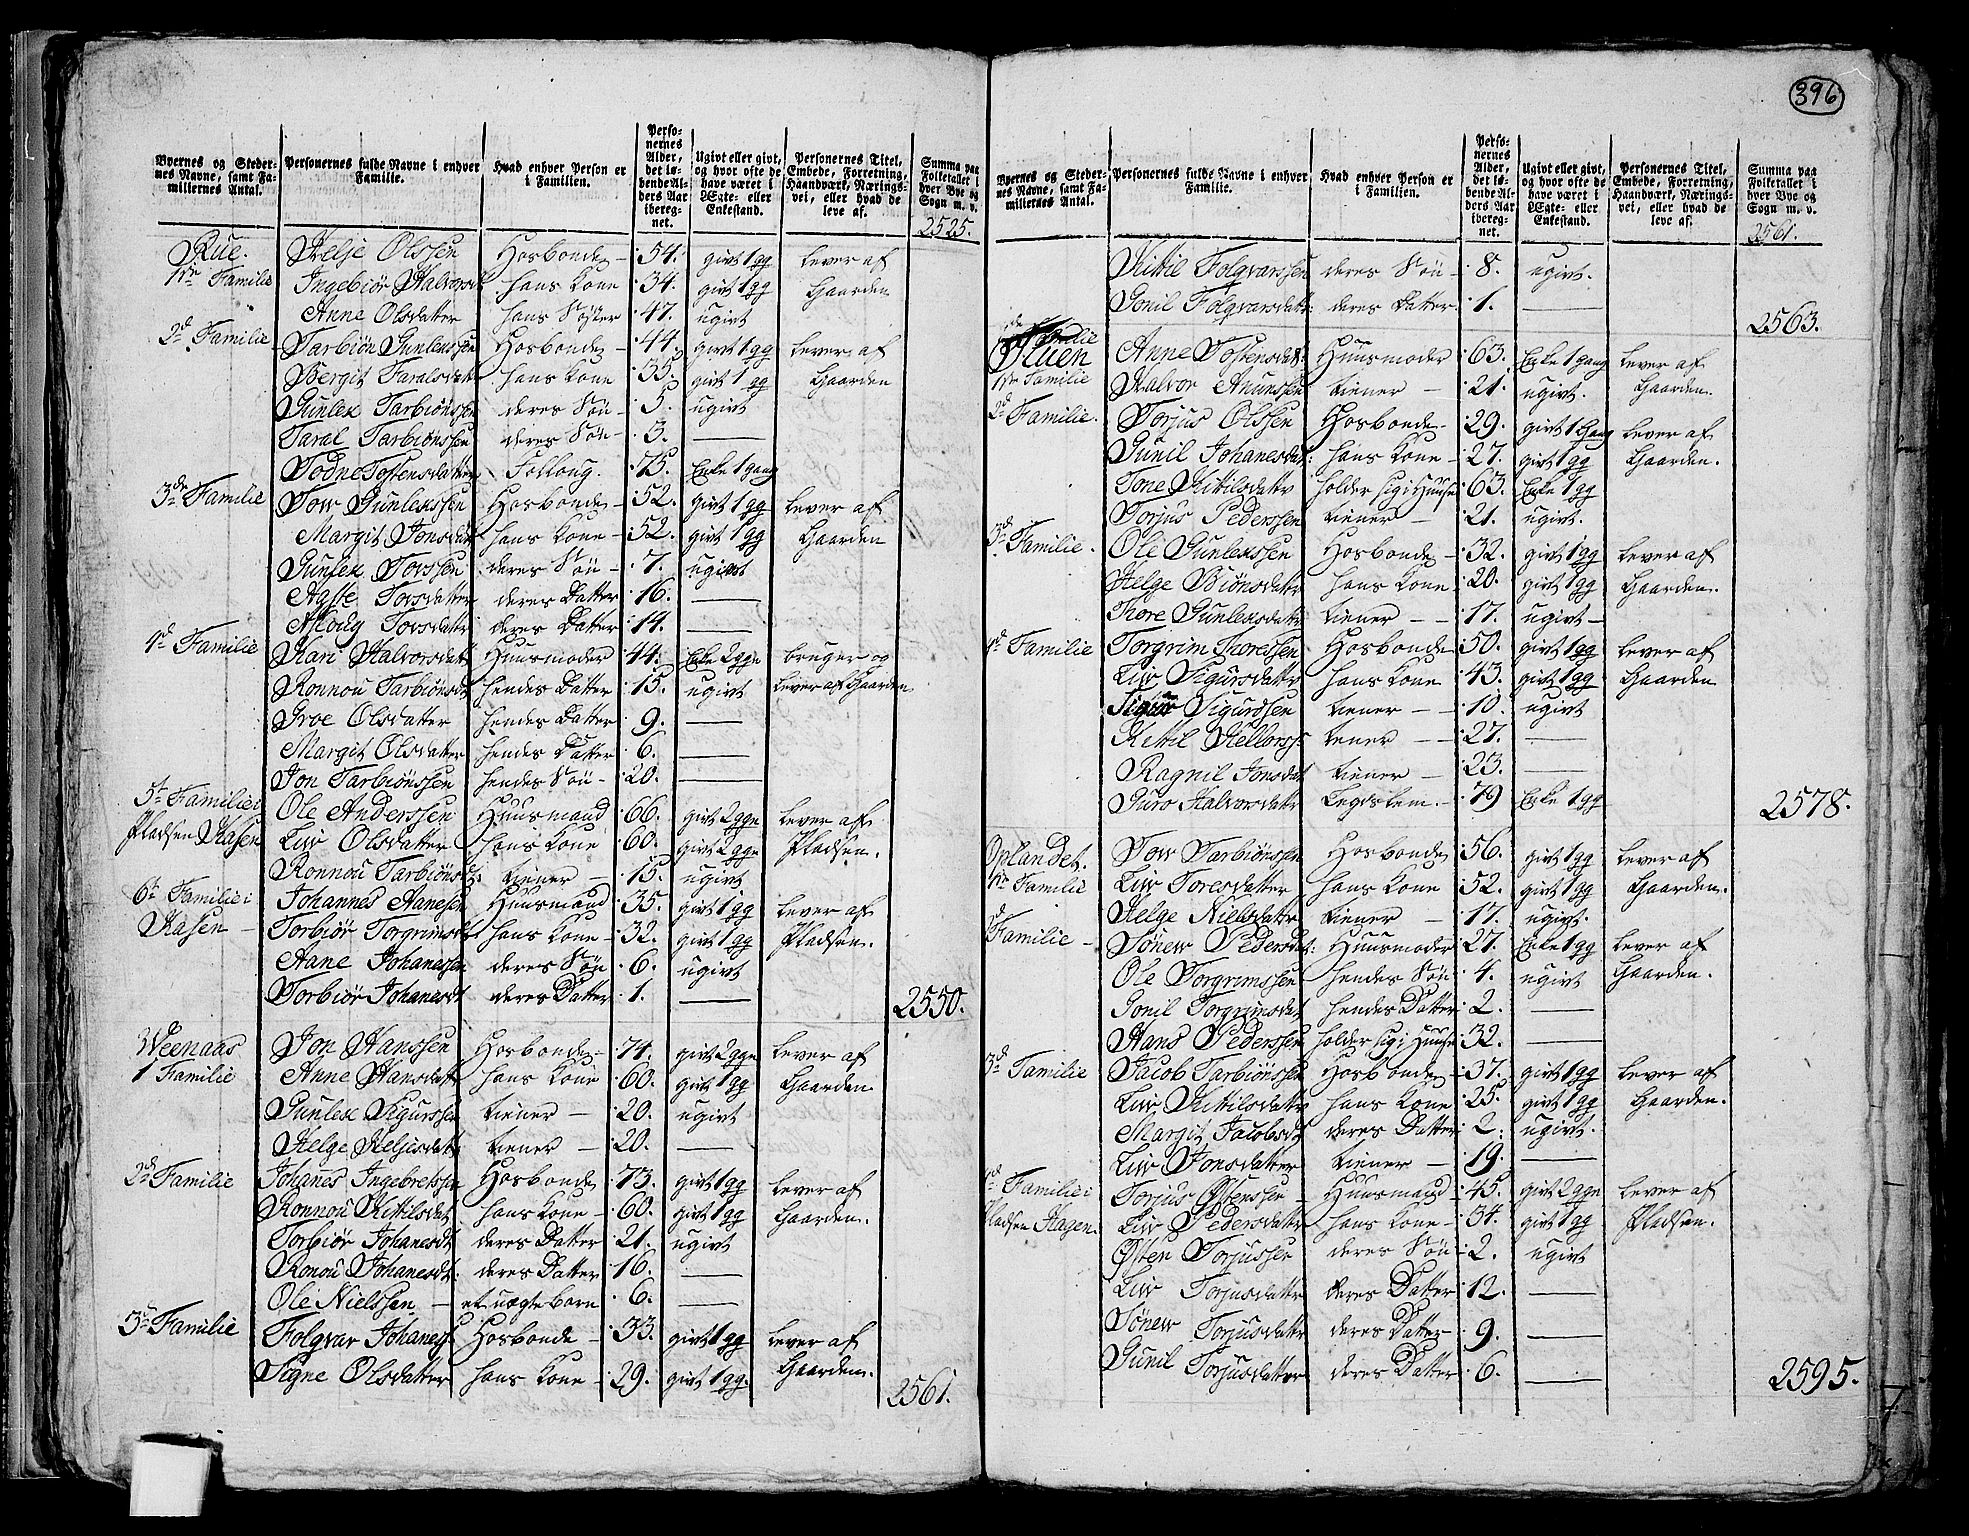 396
Byernes og Stedernes Navne, samt Familiernes Antal. | Personernes fulde Navne i enhver Familie. | Hvad enhver Person er i Familien. | Personernes Alder, det løbende Alders Aar iberegnet. | Ugivt eller givt, og hvor ofte de have været i Ægte- eller Enkestand. | Personernes Titel, Embede, Forretning, Haandværk, Næringsvei, eller hvad de leve af. | Summa paa Folketallet i hver Bye og Sogn m. v.
2525.
Rue. Helje Olssen Hosbonde 54. givt 1 gg lever af
1ste Familie Ingebiør Halvorsd hans Kone 34. givt 1 gg Gaarden
Anne Olsdatter hans Søster 47. ugivt
2d Familie Tarbiøn Gunlekssen Hosbonde 44. givt 1 gg lever af
Bergit Taralsdatt hans Kone 35. givt 1 gg Gaarden
Gunlek Tarbiønssen deres Søn 5. ugivt
Taral Tarbiønssen deres Søn 3. —
Todne Tostensdatter Folloug. 75. Enke 1 gang
3de Familie Tow Gunlekssen Hosbonde 52. givt 1 gg lever af
Margit Jonsdatt hans Kone 52. givt 1 gg Gaarden
Gunlek Tovssen deres Søn 7. ugivt
Aasse Tovsdatter deres Datter 16. —
Aloug Tovsdattr deres Datter 14. —
4d Familie Kari Halvorsdatt Huusmoder 44. Enke 2 gge bruger og
Ronnou Tarbiønsdt hendes Datter 15. ugivt lever af Gaarden
Groe Olsdatter hendes Datter 9. —
Margit Olsdatter hendes Datter 6. —
Jon Tarbiønssen hendes Søn 20. —
5t Familie i Ole Anderssen Huusmand 66. givt 2 gge lever af
Pladsen Kasen Liv Olsdatter hans Kone 60. givt 2 gge Pladsen.
Ronnou Tarbiønsdt tiener 15. ugivt
6t Familie i Johannes Aanesen Huusmand 35. givt 1 gg lever af
Kasen Torbiør Torgrimsdt hans Kone 32. givt 1 gg Pladsen.
Aane Johanessen deres Søn 6. ugivt
Torbiør Johanesdt deres Datter 1. — 2550.
Weenaas Jon Hanssen Hosbonde 74. givt 2 gge lever af
1 Familie Anne Hansdatt hans Kone 60. givt 1 gg Gaarden
Gunlek Sigurssen tiener 20. ugivt
Helge Heljesdatt tiener 20. —
2d Familie Johanes Ingebretssen Hosbonde 73. givt 1 gg lever af
Ronnou Kittilsdat hans Kone 60. givt 1 gg Gaarden.
Torbiør Johanesdt deres Datter 21. ugivt
Ronou Johanesdt: deres Datter 16. —
Ole Nielssen et uægte Barn 6. —
3de Familie Folgvar Johaness Hosbonde 33. givt 1 gg lever af
Signe Olsdatter hans Kone 29. givt 1 gg. Gaarden. 2561.
Byernes og Stedernes Navne, samt Familiernes Antal. | Personernes fulde Navne i enhver Familie. | Hvad enhver Person er i Familien. | Personernes Alder, det løbende Alders Aar iberegnet. | Ugivt eller givt, og hvor ofte de have været i Ægte- eller Enkestand. | Personernes Titel, Embede, Forretning, Haandværk, Næringsvei, eller hvad de leve af. | Summa paa Folketallet i hver Bye og Sogn m. v.
2561.
Kittil Folgvarssen deres Søn 8. ugivt.
Gonil Folgvarsdatt: deres Datter 1. —
2563.
Familie
Anne Tostensdatt: Huusmoder 63. Enke 1 gang lever af
1ste Familie Halvor Anunssen tiener 21. ugivt. Gaarden.
2d Familie. Torjus Olssen Hosbonde 29. givt 1 Gang lever af
Gunil Johanesdat: hans Kone 27. givt 1 gg Gaarden.
Tone Kittilsdattr holder sig i Huuse 63. Enke 1 gg
Torjus Pederssen tiener 21. ugivt.
3d Familie. Ole Gunlekssen Hosbonde 32. givt 1 gg lever af
Helge Biønsdattr hans Kone 20. givt 1 gg Gaarden.
Thore Gunleksdattr tiener 17. ugivt
4d Familie Torgrim Thoressen Hosbonde 50. givt 1 gg lever af
Liv Sigursdattr hans Kone 43. givt 1 gg Gaarden
Sigurdssen tiener 10. ugivt
Kittil Kellorss: tener 27. —
Ragnil Jonsdat tiener 23. —
Guro Halvorsdattr Legdslem. 79 Enke 1 gg 2578.
Oplandet. Tow Tarbiønssen Hosbonde 56. givt 1 gg lever af
1ste Familie Liv Toresdatter hans Kone 52. givt 1 gg Gaarden.
Helge Nielsdattr tiener 17. ugivt.
Familie Sønew Pedersdat: Huusmoder 27. Enke 1 gg lever af
Ole Torgrimssen hendes Søn 4. ugivt Gaarden.
Gonil Torgrimsdat hendes Datter 2. —
Hans Pederssen holder sig i Huuse 32. —
3d Familie Jacob Tarbiønssen Hosbonde 37. givt 1 gg lever af
Liv Kittilsdattr hans Kone 25. givt 1 gg Gaarden.
Margit Jacobsdt deres Datter 2. ugivt.
Liv Jonsdatter tiener 19. —
Familie i Torjus Østenssen Huusmand 45. givt 2 gge lever af
Pladsen Hagen. Liv Pedersdattr hans Kone 34. givt 1 gg Pladsen.
Østen Torjussen deres Søn 2. ugivt
Liv Torjusdattr deres Datter 12. —
Sønew Torjusdattr deres Datter 9. —
Gunil Torjusdatter deres Datter 6. — 2595.